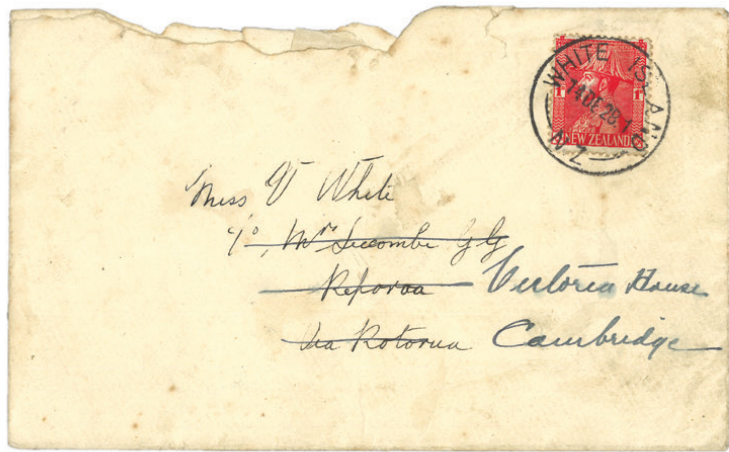 WHITE ISLAND
14 DE 28. 1
N.Z
1 1
NEW ZEALAND
Miss V White
c/o Mrs Seccombe G G
Reporoa Victoria House
Via Rotorua Cambridge